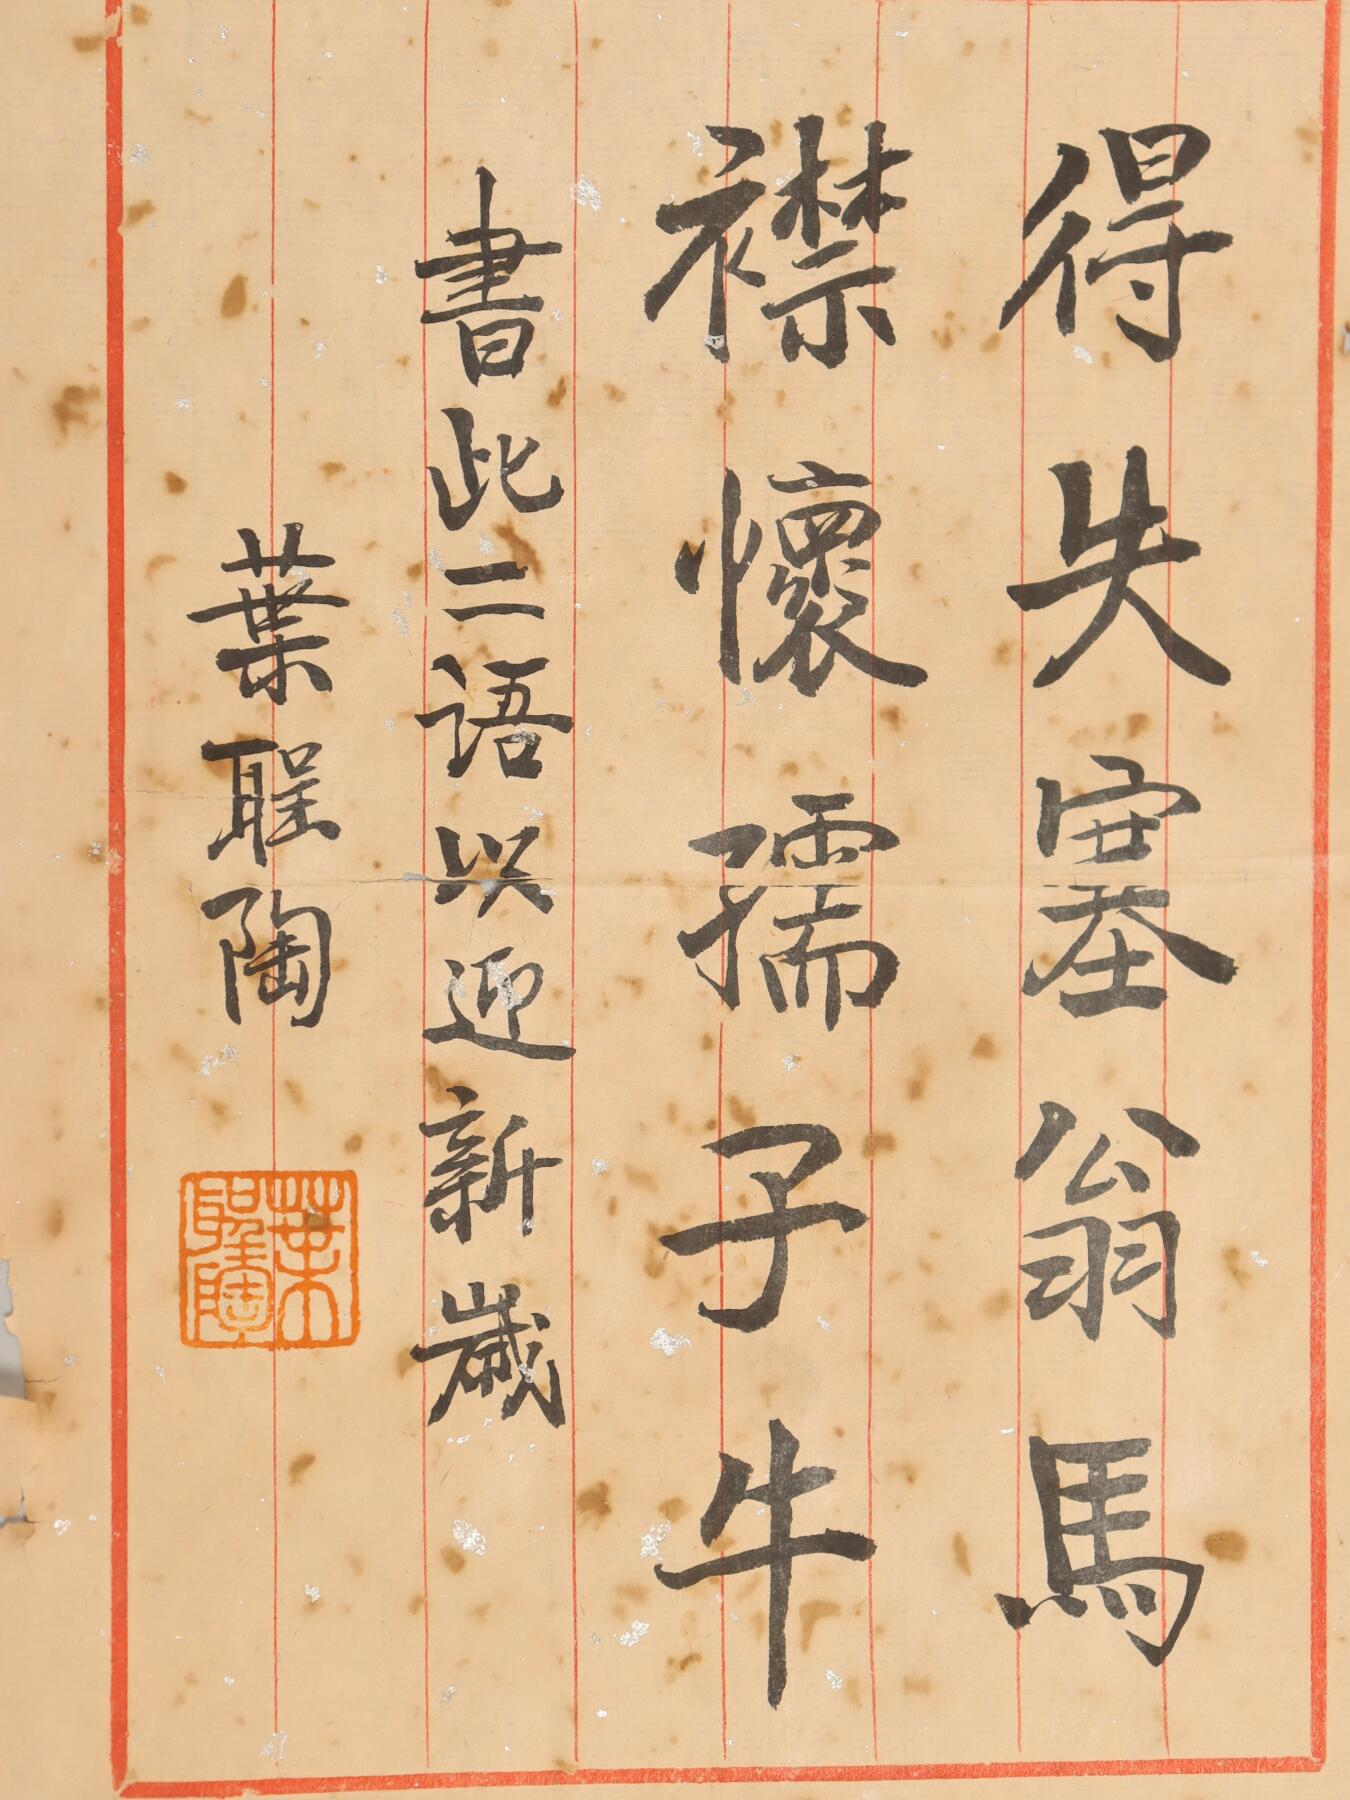 得失塞翁馬
襟懷孺子牛
書此二语以迎新歲
葉聖陶
葉聖陶